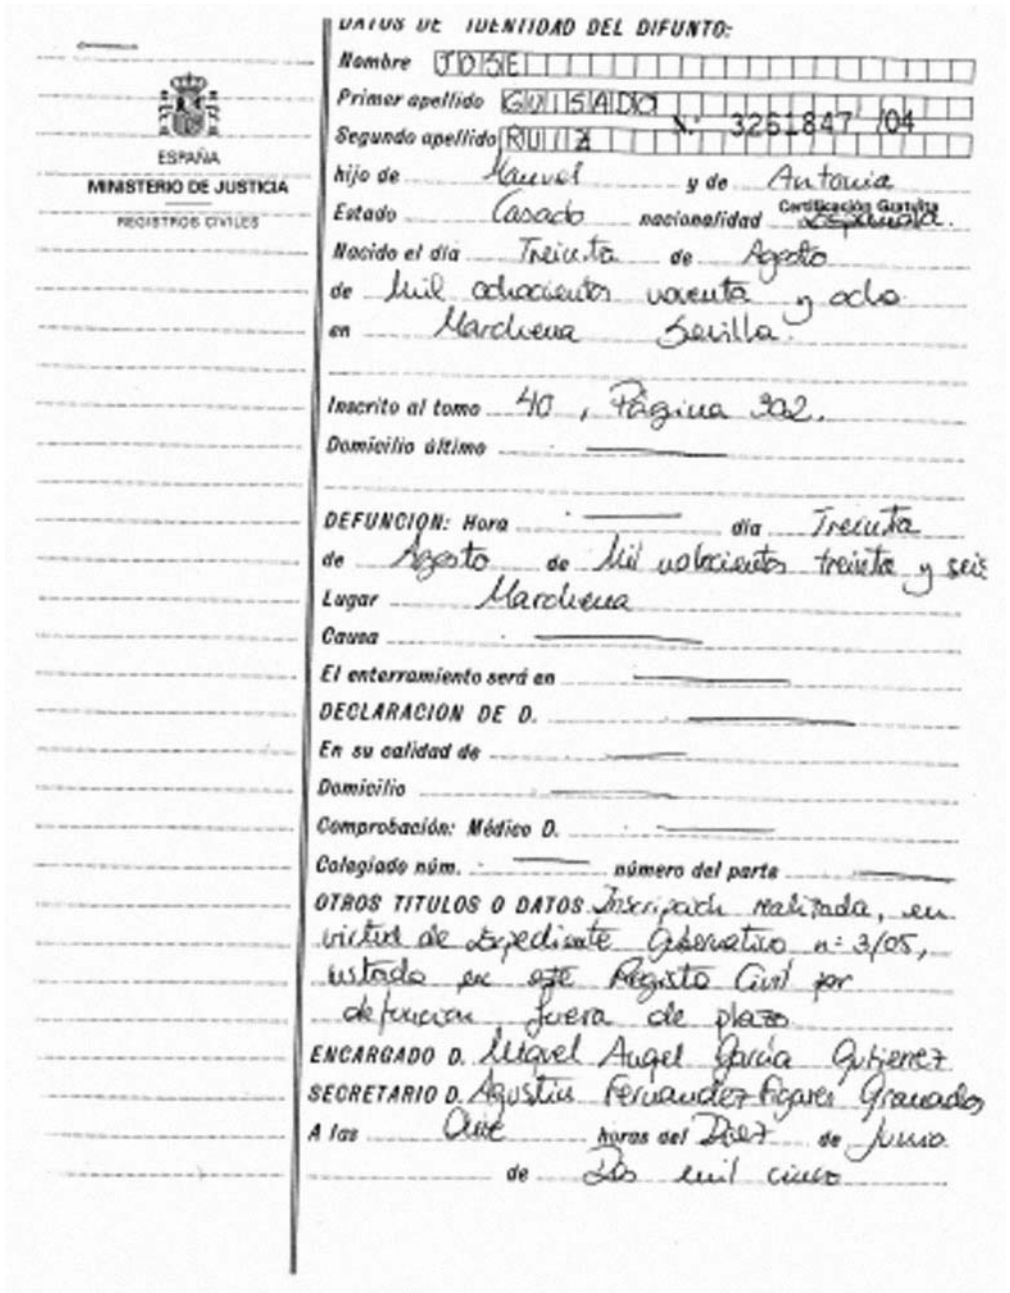 DATOS DE IDENTIDAD DEL DIFUNTO:
Nombre JOSE
Primer apellido GUISADO
N.º 3261847 /04
Segundo apellido RUIZ
ESPAÑA
MINISTERIO DE JUSTICIA
REGISTROS CIVILES
hijo de Manuel y de Antonia
Certificación Gratuita
Estado Casado nacionalidad Española.
Nacido el día Treinta de Agosto
de Mil ochocientos noventa y ocho
en Marchena Sevilla.
Inscrito al tomo 40, Página 302.
Domicilio último
DEFUNCION: Hora día Treinta
de Agosto de Mil novecientos treinta y seis
Lugar Marchena
Causa
El enterramiento será en
DECLARACION DE D.
En su calidad de
Domicilio
Comprobación: Médico D.
Colegiado núm. número del parte
OTROS TITULOS O DATOS Inscripción realizada, en
virtud de Expediente Gubernativo nº 3/05,
en este Registro Civil por
defunción fuera de plazo
ENCARGADO D. Miguel Angel García Gutierrez
SECRETARIO D. Agustín Fernandez-Figares Granados
A las Once horas del Diez de Junio
de Dos mil cinco